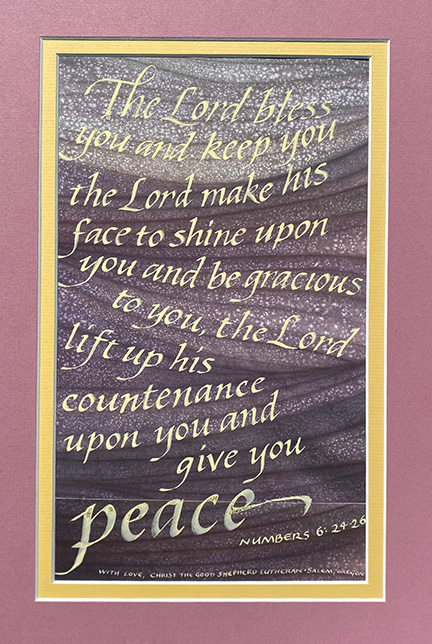 The Lord bless
you and keep you
the Lord make his
face to shine upon
you and be gracious
to you, the Lord
lift up his
countenance
upon you and
give you
peace
NUMBERS 6:24-26
WITH LOVE, CHRIST THE GOOD SHEPHERD LUTHERAN · SALEM, OREGON